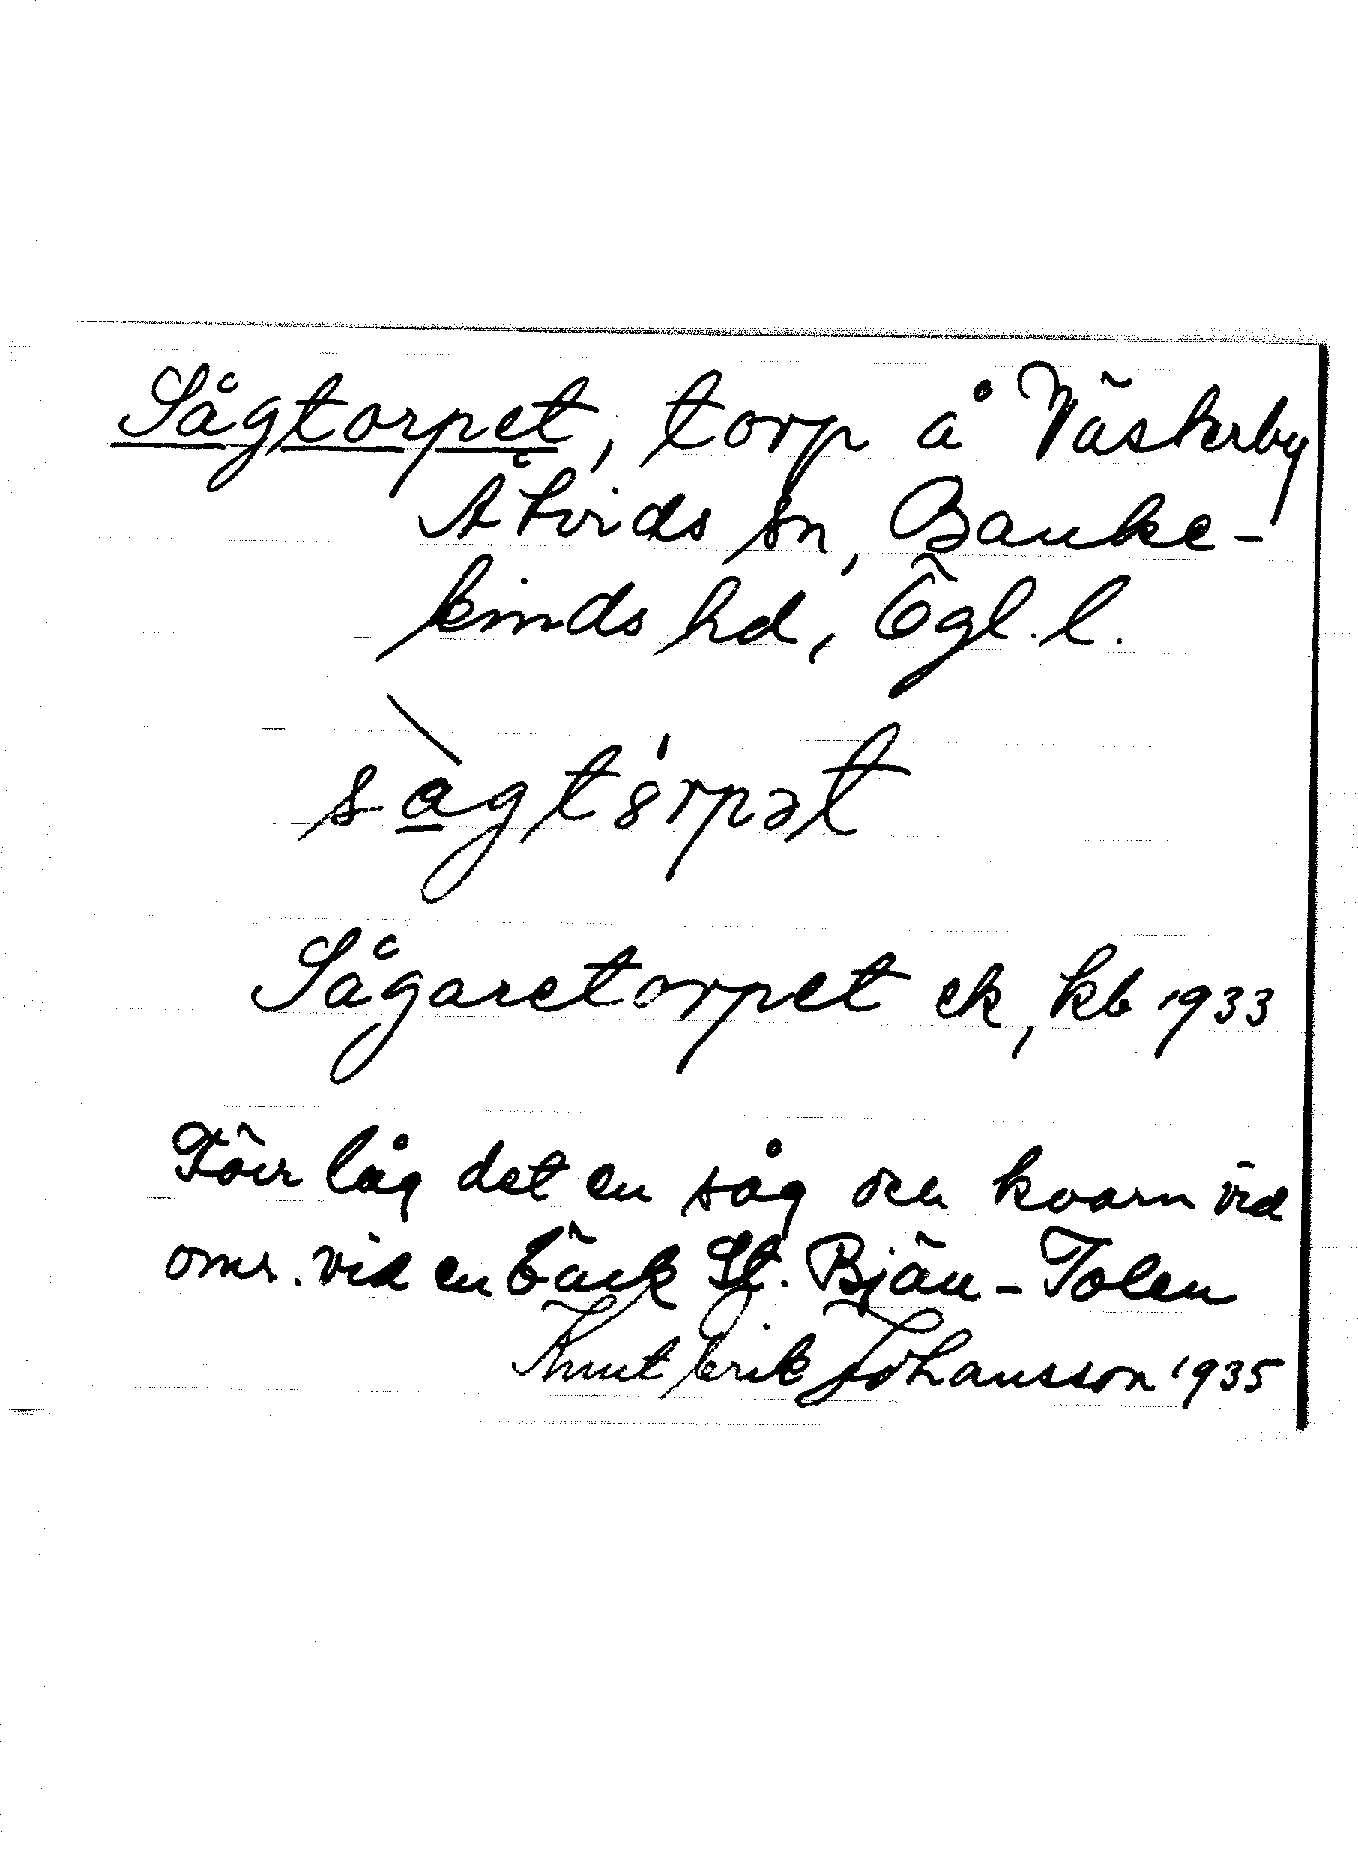 Sågtorpet, torp å Väskerby
Åtvids sn, Banke-
kinds hd, Ögl. l.
sàgtórpət
Sågaretorpet ek, kb 1933
Förr låg det en såg och kvarn vid
omr. vid en bäck St. Bjän-Tolen
Knut Erik Johansson 1935